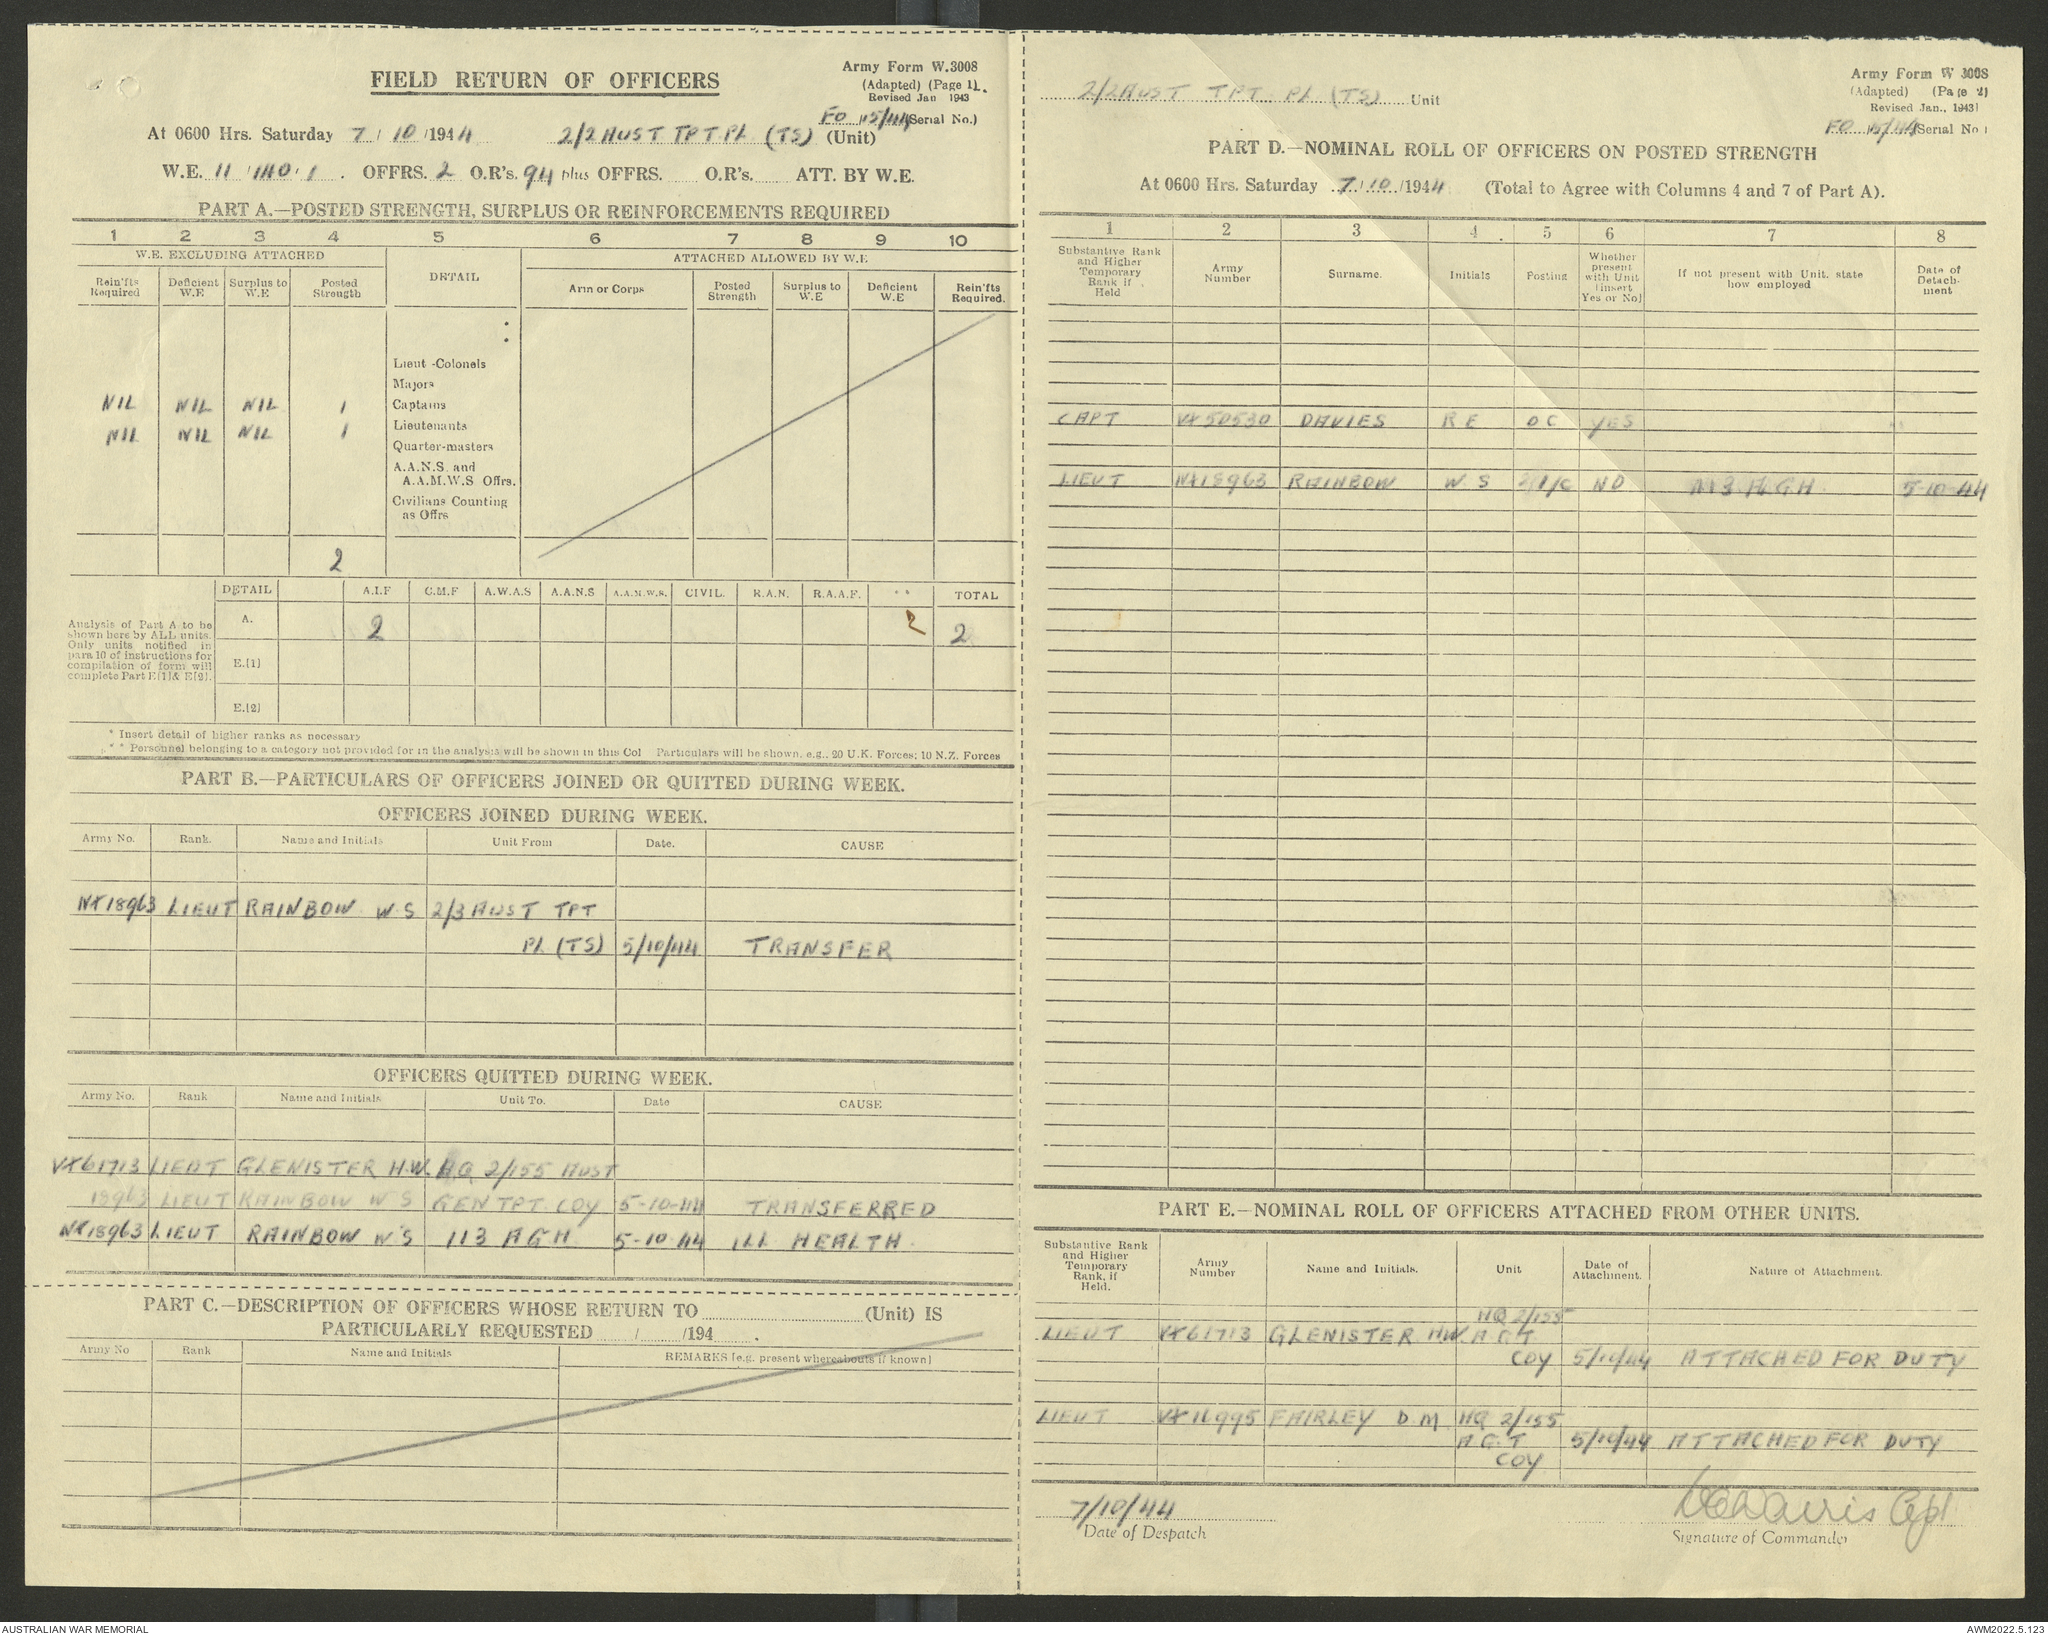 FIELD RETURN OF OFFICERS
Army Form W.3008
(Adapted) (Page 1).
Revised Jan 1943
FO 15/44 (Serial No.)
At 0600 Hrs. Saturday 7/10/1944 2/2 AUST TPT PL (TS) (Unit)
W.E. 11/140/1. OFFRS. 2 O.R's. 94 plus OFFRS. O.R's. ATT. BY W.E.
PART A.—POSTED STRENGTH, SURPLUS OR REINFORCEMENTS REQUIRED
1 2 3 4 5 6 7 8 9 10
W.E. EXCLUDING ATTACHED DETAIL ATTACHED ALLOWED BY W.E
Rein'fts Required Deficient W.E Surplus to W.E Posted Strength Arm or Corps Posted Strength Surplus to W.E Deficient W.E Rein'fts Required.
Lieut -Colonels
Majors
NIL NIL NIL 1 Captains
NIL NIL NIL 1 Lieutenants
Quarter-masters
A.A.N.S. and
A.A.M.W.S Offrs.
Civilians Counting
as Offrs
2
DETAIL A.I.F C.M.F A.W.A.S A.A.N.S A.A.M.W.S. CIVIL. R.A.N. R.A.A.F. ** TOTAL
Analysis of Part A to be
shown here by ALL units.
Only units notified in
para 10 of instructions for
compilation of form will
complete Part E[1] & E[2].
A. 2 2 2
E.[1]
E.[2]
* Insert detail of higher ranks as necessary
** Personnel belonging to a category not provided for in the analysis will be shown in this Col Particulars will be shown, e.g., 20 U.K. Forces; 10 N.Z. Forces
PART B.—PARTICULARS OF OFFICERS JOINED OR QUITTED DURING WEEK.
OFFICERS JOINED DURING WEEK.
Army No. Rank. Name and Initials Unit From Date. CAUSE
NX18963 LIEUT RAINBOW W.S 2/3 AUST TPT
PL (TS) 5/10/44 TRANSFER
OFFICERS QUITTED DURING WEEK.
Army No. Rank Name and Initials Unit To. Date CAUSE
VX61713 LIEUT GLENISTER H.W. HQ 2/155 AUST
18963 LIEUT RAINBOW W S GEN TPT. COY 5-10-44 TRANSFERRED
NX18963 LIEUT RAINBOW W S 113 AGH 5-10-44 ILL HEALTH.
PART C.—DESCRIPTION OF OFFICERS WHOSE RETURN TO (Unit) IS
PARTICULARLY REQUESTED / /194 .
Army No Rank Name and Initials REMARKS [e.g. present whereabouts if known]
2/2 AUST TPT PL (TS) Unit
Army Form W 3008
(Adapted) (Page 2)
Revised Jan., 1943]
FO 15/44 (Serial No.)
PART D.—NOMINAL ROLL OF OFFICERS ON POSTED STRENGTH
At 0600 Hrs. Saturday 7/10/1944 (Total to Agree with Columns 4 and 7 of Part A).
1 2 3 4 5 6 7 8
Substantive Rank and Higher Temporary Rank if Held Army Number Surname. Initials Posting Whether present with Unit [insert Yes or No] If not present with Unit, state how employed Date of Detach-ment
CAPT VX50530 DAVIES R E OC YES
LIEUT NX18963 RAINBOW W.S 2 I/C NO 113 A.G.H. 5-10-44
PART E.—NOMINAL ROLL OF OFFICERS ATTACHED FROM OTHER UNITS.
Substantive Rank and Higher Temporary Rank, if Held. Army Number Name and Initials. Unit Date of Attachment. Nature of Attachment.
HQ 2/155
LIEUT VX61713 GLENISTER H.W. A G T
COY 5/10/44 ATTACHED FOR DUTY
LIEUT VX11995 FAIRLEY D.M HQ 2/155
A.G.T 5/10/44 ATTACHED FOR DUTY
COY
7/10/44
Date of Despatch
Capt
Signature of Commander
AUSTRALIAN WAR MEMORIAL
AWM2022.5.123